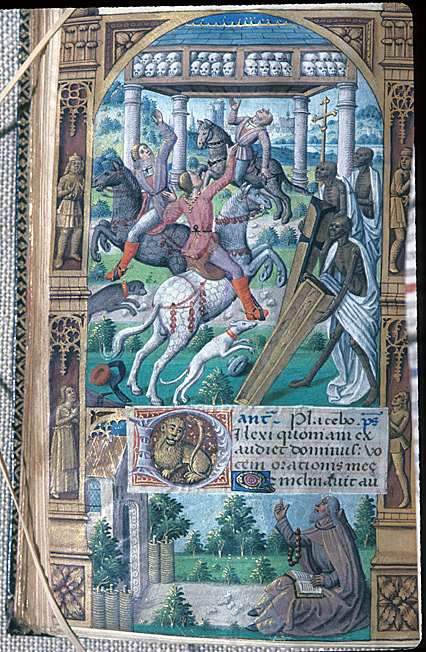 ant~ Placebo. ps
Dilexi quoniam ex
audiet dominus: vo
cem orationis mee
Q inclinavit au